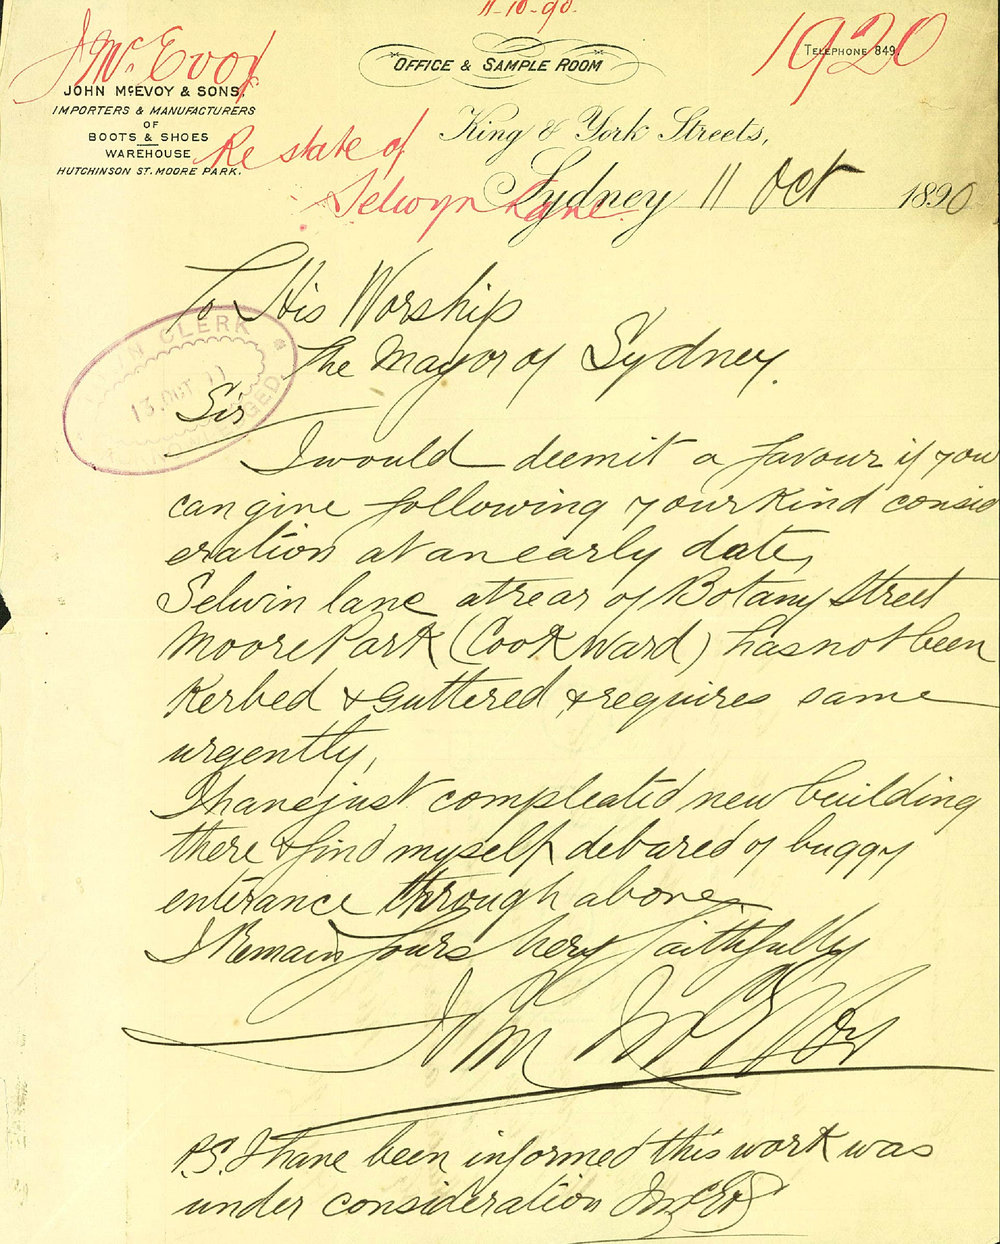 11-10-90.
J McEvoy
1920
TELEPHONE 849.
OFFICE & SAMPLE ROOM
JOHN McEVOY & SONS,
IMPORTERS & MANUFACTURERS
OF
BOOTS & SHOES
WAREHOUSE
HUTCHINSON ST. MOORE PARK.
King & York Streets,
Re state of
Selwyn Lane.
Sydney 11 Oct 1890
To His Worship
The Mayor of Sydney.
CLERK
13.OCT
Sir
I would deem it a favour if you
can give following your kind consid
eration at an early date,
Selwin lane at rear of Botany Street
Moore Park (Cook Ward) has not been
Kerbed & Guttered & requires same
urgently,
I have just compleated new building
there & find myself debared of buggy
enterance through above,
I Remain Yours Very faithfully
John McEvoy
P.S. I have been informed this work was
under consideration JMcE